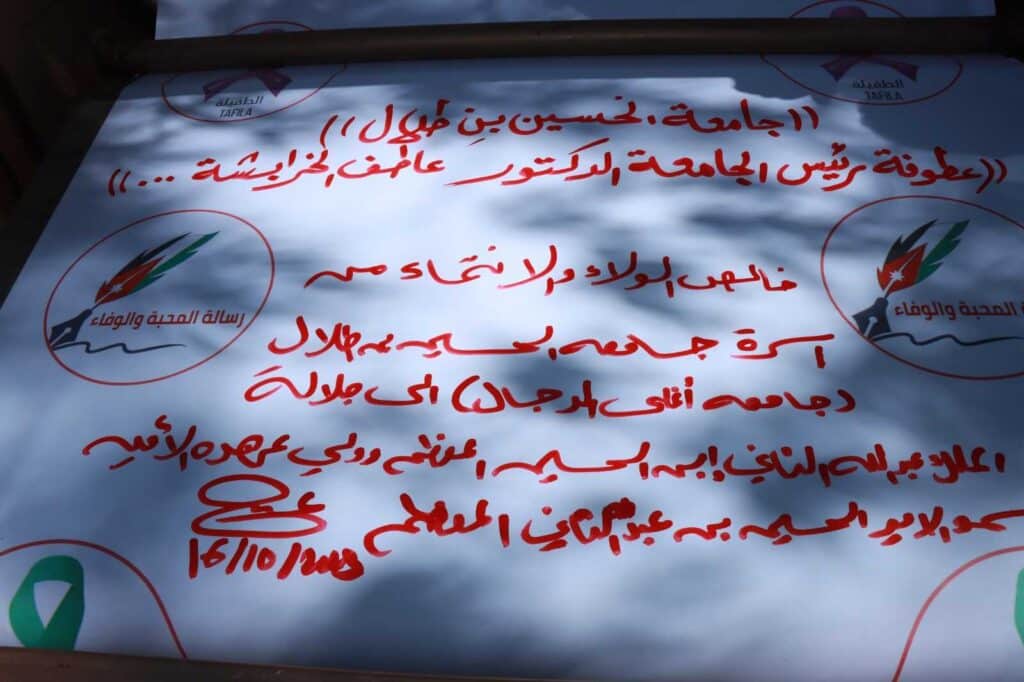 الطفيلة
TAFILA
الطفيلة
TAFILA
((جامعة الحسين بن طلال))
((عطوفة رئيس الجامعة الدكتور عاطف الخرابشة ...))
رسالة المحبة والوفاء
المحبة والوفاء
خالص الولاء والانتماء من
اسرة جامعه الحسين بن طلال
(جامعه أغلى الرجال) الى جلالة
الملك عبد الله الثاني إبن الحسين المعظم وولي عهده الأمين
سمو الامير الحسين بن عبدالله الثاني المعظم
16/10/